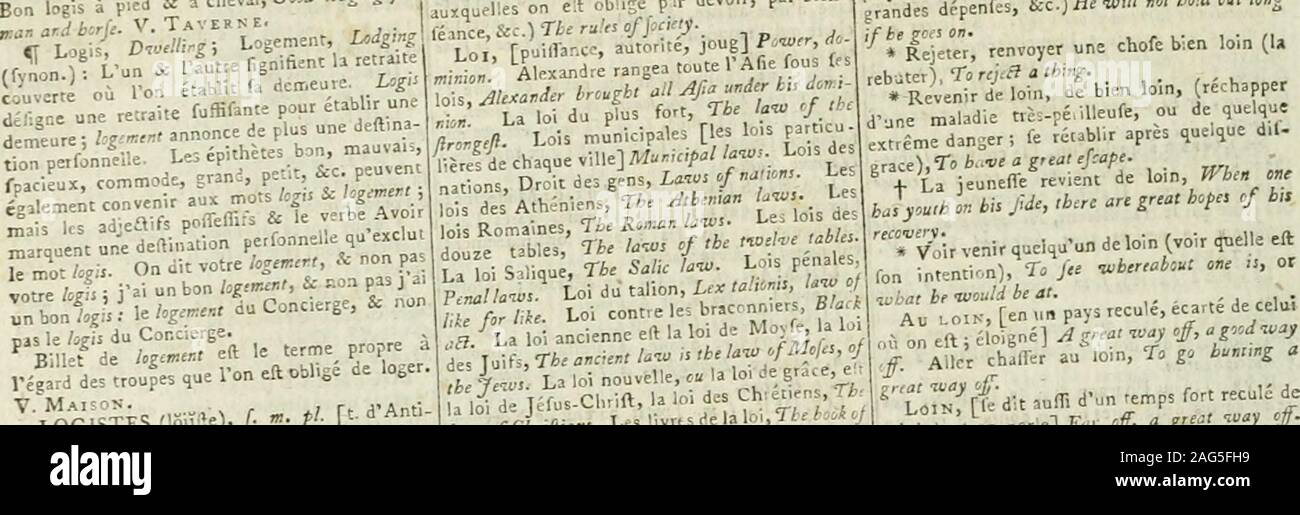 Bon logis à pied & à cheval,
man and horſe. V. TAVERNE.
¶ Logis, Dwelling; Logement, Lodging
(ſynon.): L'un & l'autre ſignifient la retraite
couverte où l'on établit ſa demeure. Logis
déſigne une retraite ſuffiſante pour établir une
demeure; logement annonce de plus une deſtina-
tion perſonnelle. Les épithètes bon, mauvais,
ſpacieux, commode, grand, petit, &c. peuvent
également convenir aux mots logis & logement;
mais les adjectifs poſſeſſifs & le verbe Avoir
marquent une deſtination perſonnelle qu'exclut
le mot logis. On dit votre logement, & non pas
votre logis; j'ai un bon logement, & non pas j'ai
un bon logis: le logement du Concierge, & non
pas le logis du Concierge.
Billet de logement eſt le terme propre à
l'égard des troupes que l'on eſt obligé de loger.
V. MAISON.
LOGISTES (lôïiſte), ſ. m. pl. [t. d'Anti-
auxquelles on eſt obligé par devoir, par
ſéance, &c.) The rules of ſociety.
LOI, [puiſſance, autorité, joug] Power, do-
minion. Alexandre rangea toute l'Aſie ſous ſes
lois, Alexander brought all Aſia under his domi-
nion. La loi du plus fort, The law of the
ſtrongeſt. Lois municipales [les lois particu-
lières de chaque ville] Municipal laws. Lois des
nations, Droit des gens, Laws of nations. Les
lois des Athéniens, The Athenian laws. Les
lois Romaines, The Roman laws. Les lois des
douze tables, The laws of the twelve tables.
La loi Salique, The Salic law. Lois pénales,
Penal laws. Loi du talion, Lex talionis, law of
like for like. Loi contre les braconniers, Black
act. La loi ancienne eſt la loi de Moyſe, la loi
des Juifs, The ancient law is the law of Moſes, of
the Jews. La loi nouvelle, ou la loi de grâce, eſt
la loi de Jéſus-Chriſt, la loi des Chrétiens, The
Les livres de la loi, The book of
grandes dépenſes, &c.) He will not hold out long
if he goes on.
* Rejeter, renvoyer une choſe bien loin (la
rebuter), To reject a thing.
* Revenir de loin, de bien loin, (réchapper
d'une maladie très-périlleuſe, ou de quelque
extrême danger; ſe rétablir après quelque diſ-
grace), To have a great eſcape.
† La jeuneſſe revient de loin, When one
has youth on his ſide, there are great hopes of his
recovery.
* Voir venir quelqu'un de loin (voir quelle eſt
ſon intention), To ſee whereabout one is, or
what he would be at.
AU LOIN, [en un pays reculé, écarté de celui
où on eſt; éloigné] A great way off, a good way
off. Aller chaſſer au loin, To go hunting a
great way off.
LOIN, [ſe dit auſſi d'un temps fort reculé de
Far off, a great way off.
alamy
Image ID: 2AG5FH9
www.alamy.com